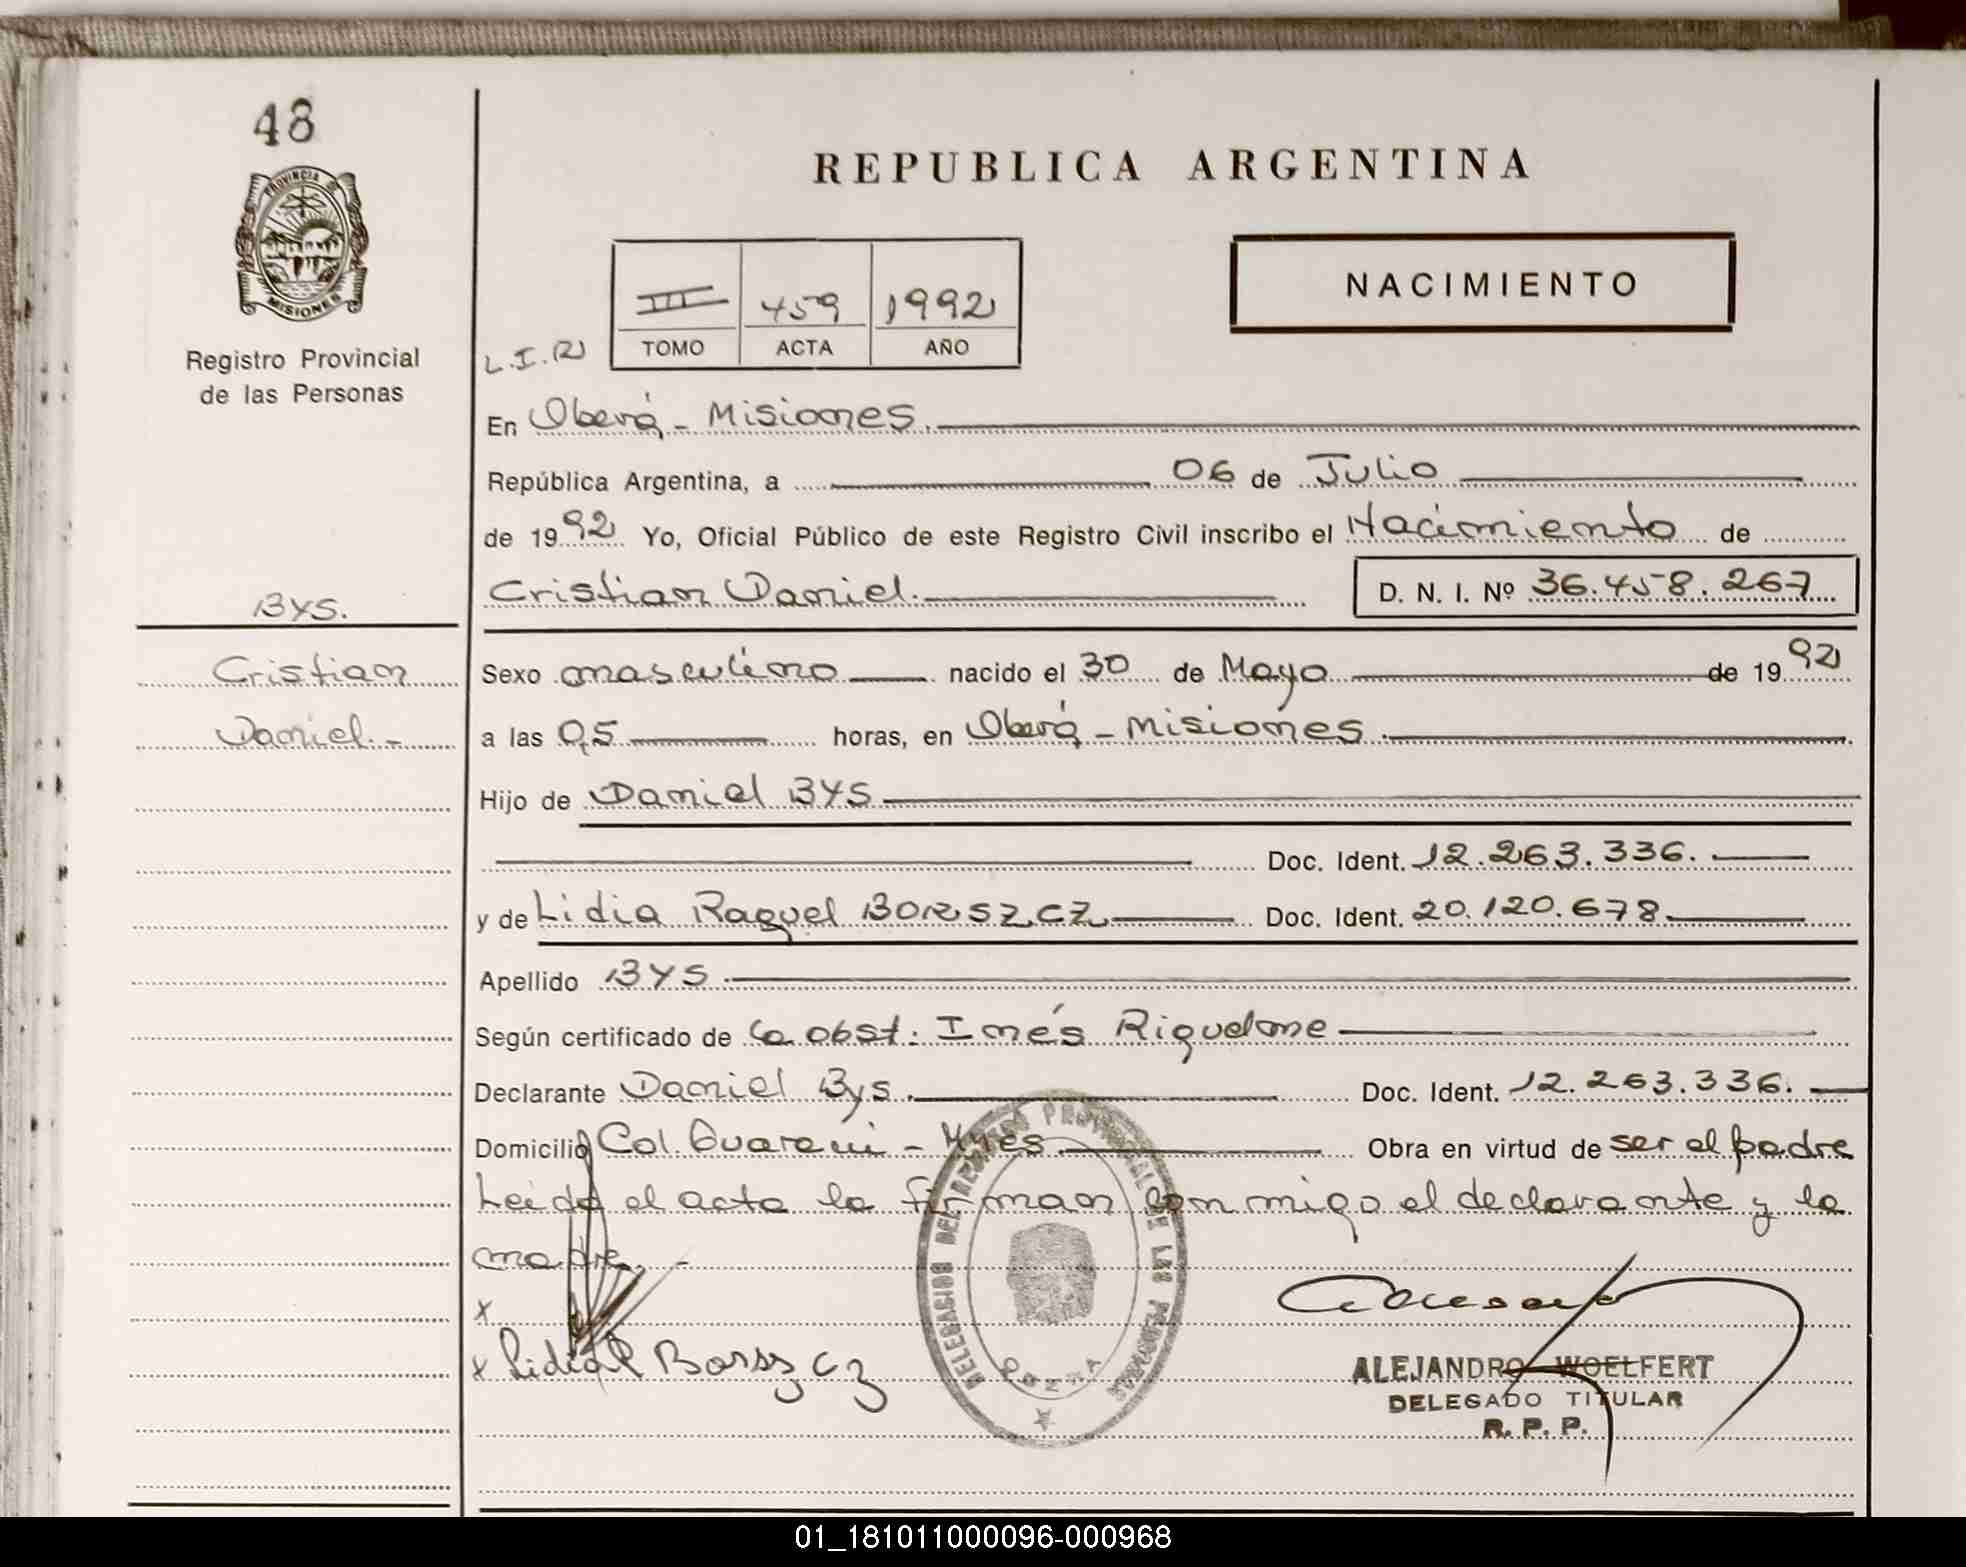 48
PROVINCIA DE
MISIONES
Registro Provincial
de las Personas
REPUBLICA ARGENTINA
NACIMIENTO
III 459 1992
TOMO ACTA AÑO
L.I.(2)
En Oberá - Misiones.
República Argentina, a 06 de Julio
de 1992 Yo, Oficial Público de este Registro Civil inscribo el Nacimiento de
Cristian Daniel. D. N. I. Nº 36.458.267
BYS.
Cristian
Daniel.-
Sexo masculino nacido el 30 de Mayo de 1992
a las 0,5 horas, en Oberá - Misiones.
Hijo de Daniel BYS
Doc. Ident. 12.263.336.
y de Lidia Raquel BORSZCZ Doc. Ident. 20.120.678.
Apellido BYS.
Según certificado de la obst. Inés Riquelme
Declarante Daniel Bys. Doc. Ident. 12.263.336.
Domicilio Col. Guaraní - Mnes. Obra en virtud de ser el padre
Leída el acta la firman conmigo el declarante y la
madre. -
x
x Lidia R Borszcz
DELEGACION DEL REGISTRO PROVINCIAL DE LAS PERSONAS
ALEJANDRO WOELFERT
DELEGADO TITULAR
R. P. P.
01_181011000096-000968